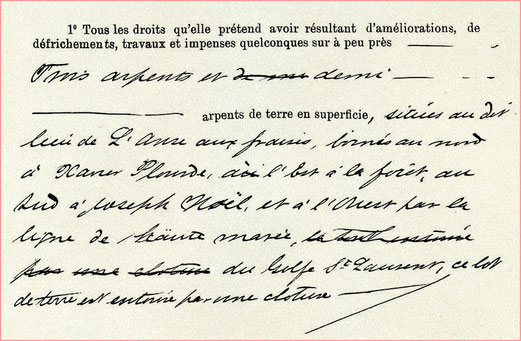 1° Tous les droits qu'elle prétend avoir résultant d'améliorations, de
défrichements, travaux et impenses quelconques sur à peu près
Trois arpents et demi
arpents de terre en superficie, situées au dit
lieu de L'Anse aux fraises, bornés au nord
à Xavier Plourde, à l'Est à la forêt, au
Sud à Joseph Noël, et à l'Ouest par la
ligne de haute marée, le tout entouré
par une cloture du Golfe St Laurent, ce lot
de terre est entouré par une cloture